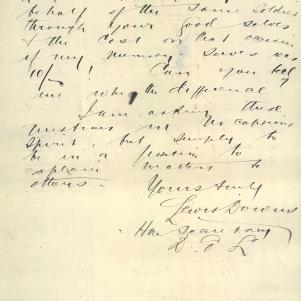 behalf of the same soldier
through your good selves
& the cost on that occasion
if my memory serves was
10/- ! Can you tell
me why the difference
I am asking these
questions in no captious
spirit, but simply to
be in a position to
explain matters to
others.
Yours truly
Lewis Downs
Hon Secretary